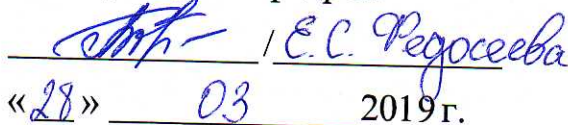 / Е.С. Федосеева
«28» 03 2019 г.